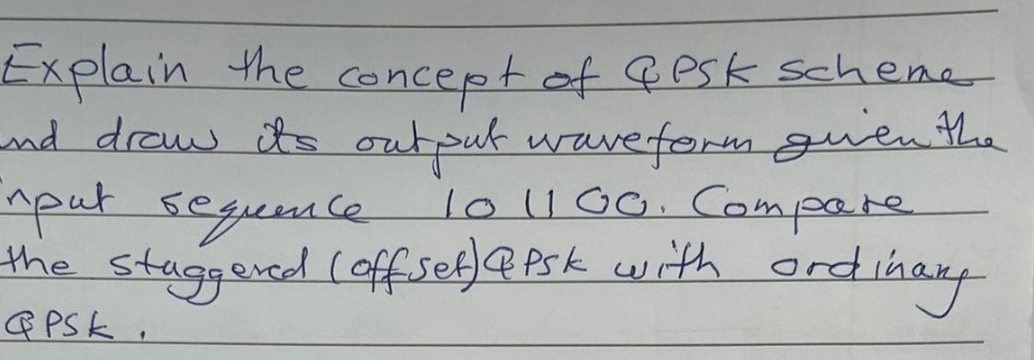 Explain the concept of QPSK scheme
nd draw its output waveform given the
nput sequence 101100. Compare
the staggered (offset) QPSK with ordinary
QPSK.